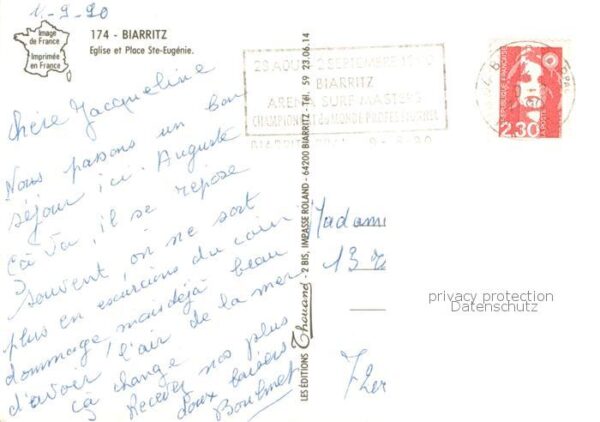 1-9-90
Image
de France
Imprimée
en France
174 - BIARRITZ
Eglise et Place Ste-Eugénie.
Chère Jacqueline
Nous passons un bon
séjour ici. Auguste
çà va, il se repose
souvent, on ne sort
plus en excursions du coin
dommage mais déjà beau
d'avoir l'air de la mer
çà change
Recevez nos plus
doux baisers
LES ÉDITIONS Thouand - 2 BIS, IMPASSE ROLAND - 64200 BIARRITZ - Tél. 59 23.06.14
20 AOUT 2 SEPTEMBRE
BIARRITZ
ARENA SURF MASTERS
CHAMPIONNAT du MONDE PROFESSIONNEL
2.30
Madam
13
privacy protection
Datenschutz